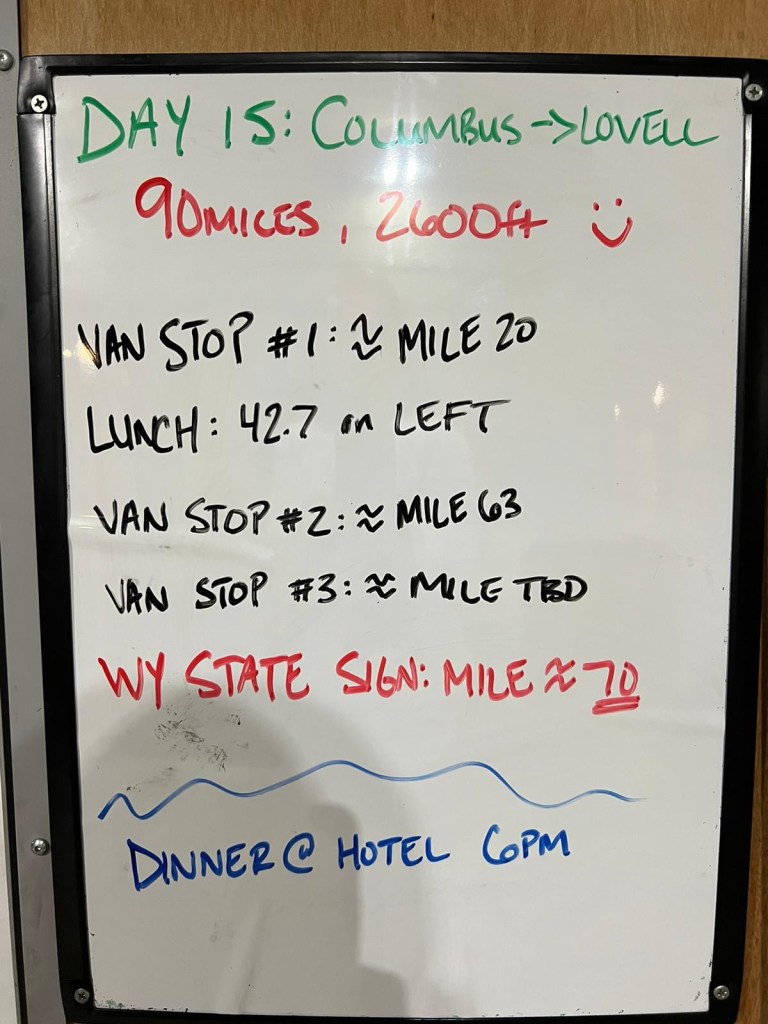 DAY 15: COLUMBUS->LOVELL
90MILES, 2600ft
VAN STOP #1: ≈ MILE 20
LUNCH: 42.7 on LEFT
VAN STOP #2: ≈ MILE 63
VAN STOP #3: ≈ MILE TBD
WY STATE SIGN: MILE ≈ 70
DINNER @ HOTEL 6PM